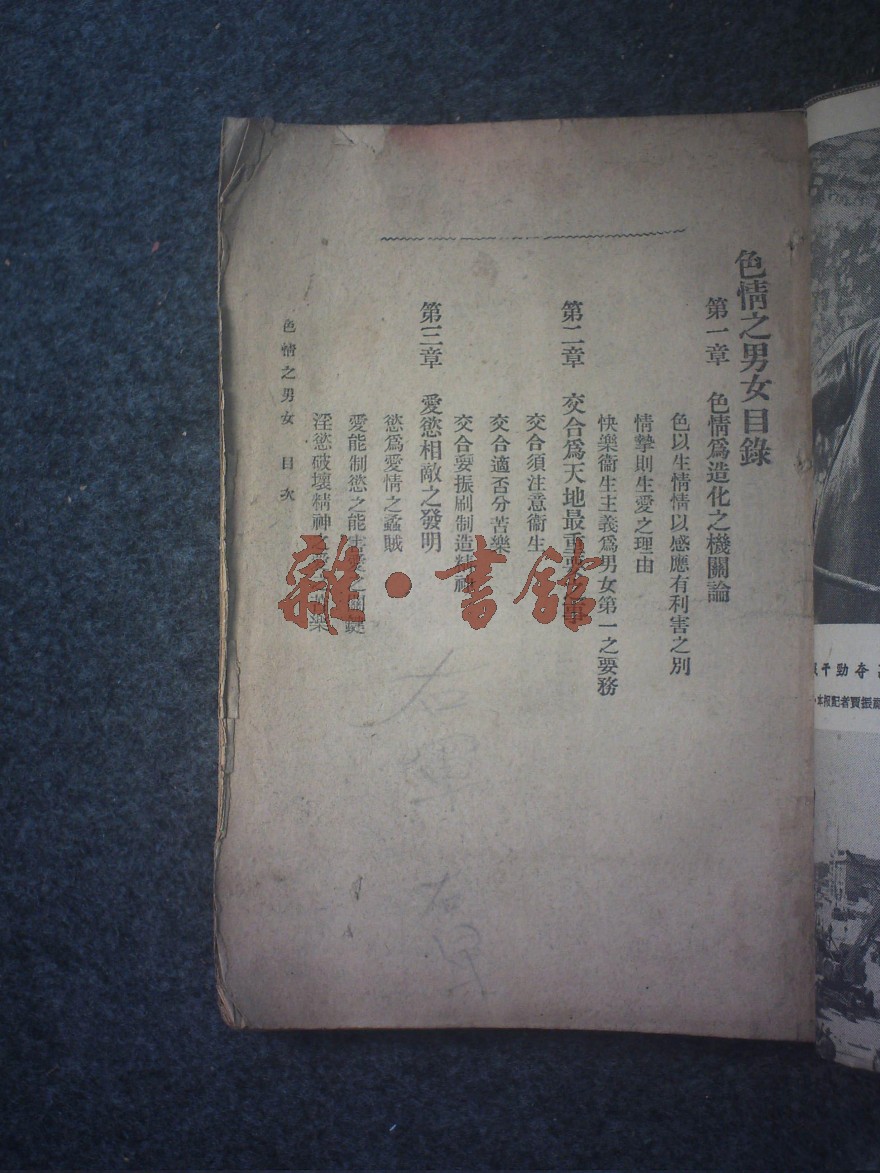 色情之男女目錄
第一章 色情爲造化之機關論
色以生情情以感應有利害之別
情摯則生愛之理由
快樂衞生主義爲男女第一之要務
第二章 交合爲天地最重
交合須注意衞生
交合適否分苦樂
交合要振刷制造精神
第三章 愛慾相敵之發明
慾爲愛情之蟊賊
愛能制慾之能
淫慾破壞精神
色情之男女 目次
雜·書館